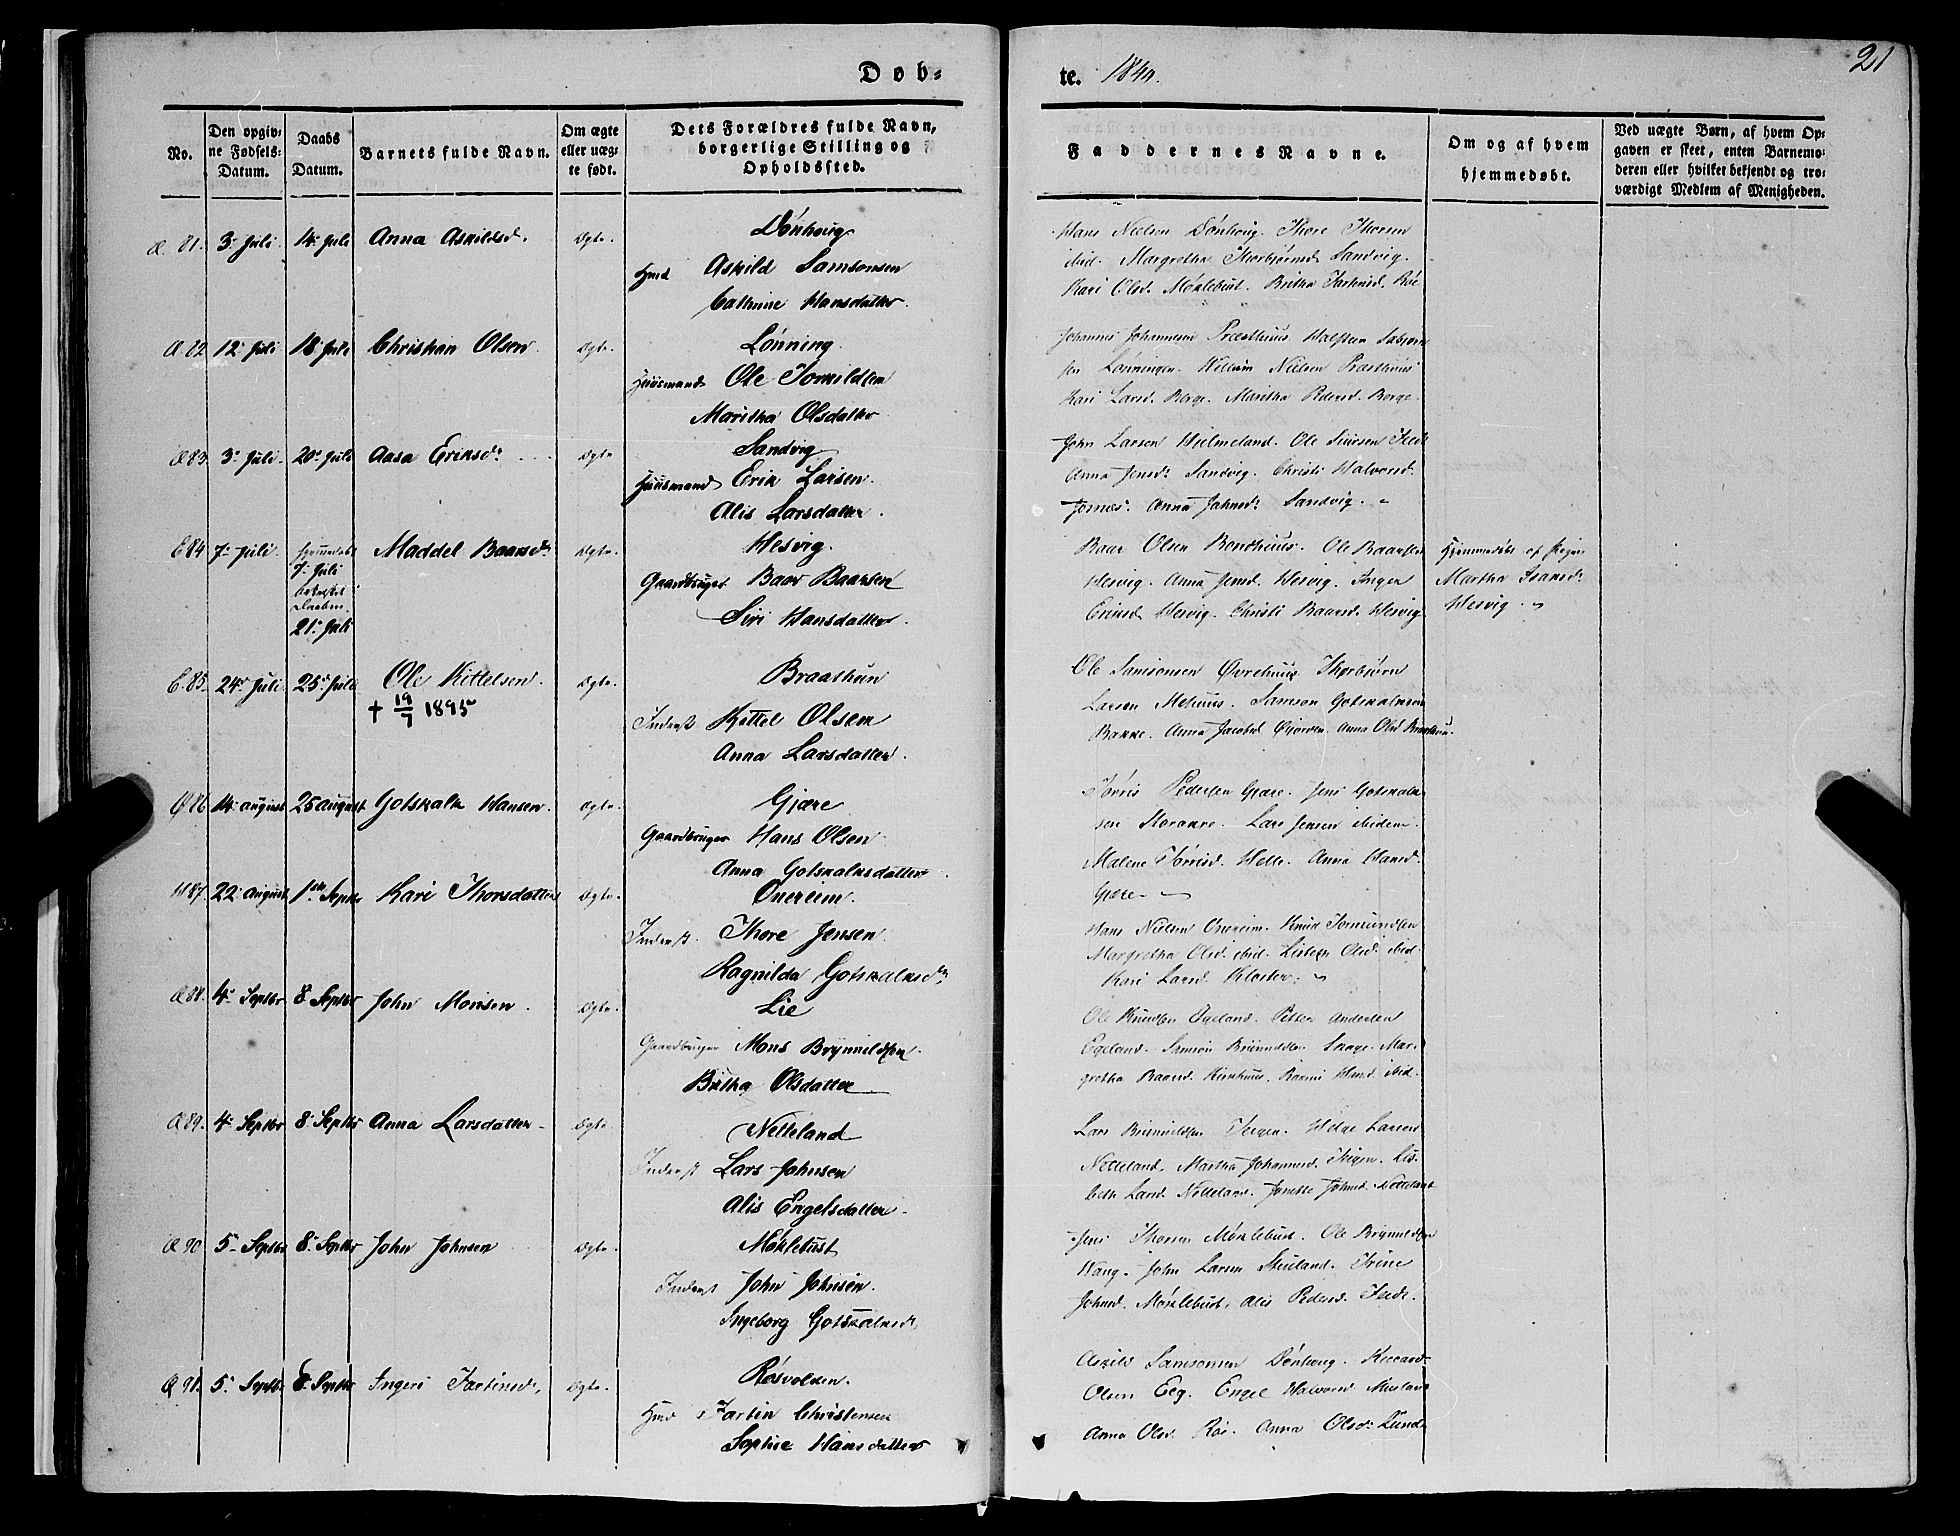 Døb=
te. 1840.
21
No.
Den opgiv=
ne Fødsels=
Datum.
Daabs
Datum.
Barnets fulde Navn.
Om ægte
eller uæg=
te født.
Dets Forældres fulde Navn,
borgerlige Stilling og
Opholdssted.
Faddernes Navne.
Om og af hvem
hjemmedøbt.
Ved uægte Børn, af hvem Op=
gaven er skeet, enten Barnemo=
deren eller hvilket bekjendt og tro=
værdigt Medlem af Menigheden.
81. 3. Juli. 14. Juli Anna Askildsd. Ægte. Dønhoug
Hmd Askild Samsonsen
Cathrine Hansdatter.
Hans Nielsen Dønhoug. Thore Thorsen
ibid. Margretha Thorbjørnsd Sandvig.
Kari Olsd. Møklebust. Britha Tartensd. Røe
82 12. Juli 18. Juli Christian Olsen. Ægte. Lønning.
Huusmand Ole Torkildsen
Maritha Olsdatter
Johannes Johannesen Præsthuus
sen Lønningen. Willum Nielsen Præsthuus
Kari Larsd. Berge. Maritha Pedersd. Berge.
83. 3. Juli 20. Juli Aasa Eriksd. Ægte Sandvig
Huusmand Erik Larsen.
Alis Larsdatter.
John Larsen Hjelmeland. Ole
Anna Jensd. Sandvig. Christi Halvorsd.
Anna Johnsd. Sandvig.
84 7. Juli. Hjemmedøbt
7. Juli
Daaben.
21. Juli
Maddel Baarsd. Ægte. Hesvig.
Gaardbruger Baar Baarsen
Siri Hansdatter.
Baar Olsen Bondhuus. Ole Baarsen
Hesvig. Anna Jensd. Hesvig. Inger
Eriksd Hesvig. Christi Baarsd. Hesvig
Hjemmedøbt af Pigen
Martha Isaksd.
Hesvig.
85. 24. Juli 25. Juli Ole Kittelsen. Ægte. Braathun
† 19/7 1895
Inderst Kittel Olsen
Anna Larsdatter.
Ole Samsonsen Øvrehuus Thorbjørn
Larsen Mehuus. Samson Gotskalksen
Bakke. Anna Jacobsd. Anna Olsd Braathun.
86 14. august 25 august. Gotskalk Hansen. Ægte. Gjære
Gaardbruger Hans Olsen
Anna Gotskalksdatter.
Tørris Pedersen Gjære. Jens Gotskalk=
sen Storakre. Lars Jensen ibidem.
Malene Tørrisd. Helle. Anna Hansd.
Gjære.
87. 22. august 1ste Septbr Kari Thorsdatter Ægte. Onereim.
Inderst. Thore Jensen
Ragnilda Gotskalksd.
Hans Nielsen Onereim. Knud Tormundsen
Margretha Olsd. ibid. Lisbeth Olsd. ibid
Kari Larsd Kloster.
88. 4. Septbr 8. Septbr John Monsen. Ægte. Lie
Gaardbruger Mons Brynnildsen.
Britha Olsdatter
Ole Knudsen Egeland. Peder Andersen
Egeland. Samson Brünnildsen Skoge. Mar=
gretha Baarsd. Kirkhuus.
89. 4. Septbr 8. Septbr Anna Larsdatter. Ægte. Netteland
Inderst Lars Johnsen
Alis Engelsdatter.
Lars Brünnildsen Teigen. Helge Larsen
Netteland. Martha Johannesd. Teigen. Lis=
beth Larsd Netteland. Jonette Johnsd. Netteland
90 5. Septbr 8. Septbr John Johnsen Ægte. Møklebust
Inderst John Johnsen.
Ingeborg Gotskalksd.
Jens Thorsen Møklebust. Ole Brynnildsen
Wang. John Larsen Skuland. Trine
Johnsd. Møklebust. Alis Pedersd.
91. 5. Septbr 8. Septbr Ingeri Tartinsd. Ægte. Røsvolden.
Hmd Tartin Christensen
Sophie Hansdatter
Askild Samsonsen Dønhoug.
Olsen Eeg. Engel Halvorsd
Anna Olsd. Røe. Anna Olsd. Lund